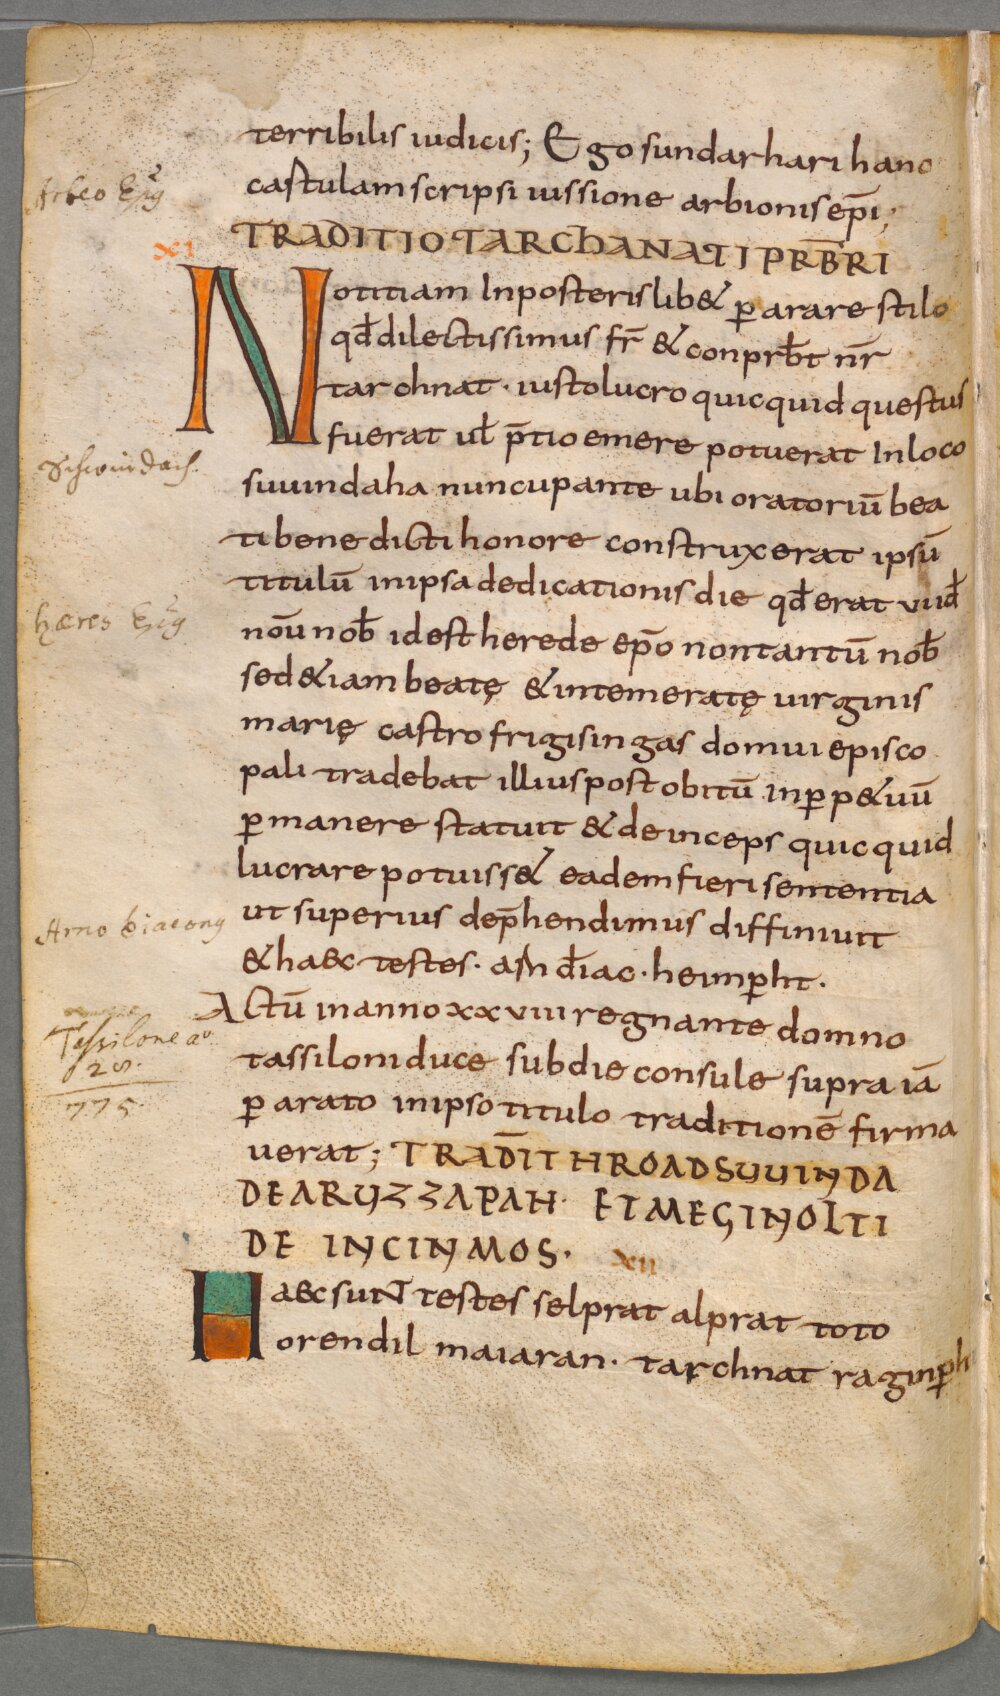 terribilis iudicis; Ego sundarhari hanc
castulam scripsi iussione arbionis ep̄i;
Arbeo Ep̄g
TRADITIO TARCHANATI PRB̄RI
XI
Notitiam In posteris lib& ꝑarare stilo
qđ dilectissimus fr̄ & conprb̄t nr̄
tarchnat · iusto lucro quicquid questus
fuerat ul̄ p̄tio emere potuerat In loco
Schwindach.
suuindaha nuncupante ubi oratoriū bea
ti benedicti honore construxerat ipsū
titulū in ipsa dedicationis die qđ erat viid̄
hæres
noū nob̄ id est herede ep̄o non tantū nob̄
sed &iam beatę & intemeratę uirginis
marię castro frigisingas domui episco
pali tradebat illius post obitū inꝑp&uū
ꝑmanere statuit & deinceps quicquid
lucrare potuiss& eadem fieri sententia
Arno diacong
ut superius dep̄hendimus diffiniuit
& haec testes · ātn d̄iac · heimꝑht ·
Actū in anno xxviii regnante domno
Tassilone aº
28.
775.
tassiloni duce sub die consule supra iā
ꝑarato in ipso titulo traditionē firma
uerat; TRAD̄IT HROADSUUINDA
DE ARUZZAPAH · ET MEGINOLTI
DE INCINMOS ·
XII
Haec sunt testes selprat alprat toto
orendil maiaran · tarchnat raginꝑh